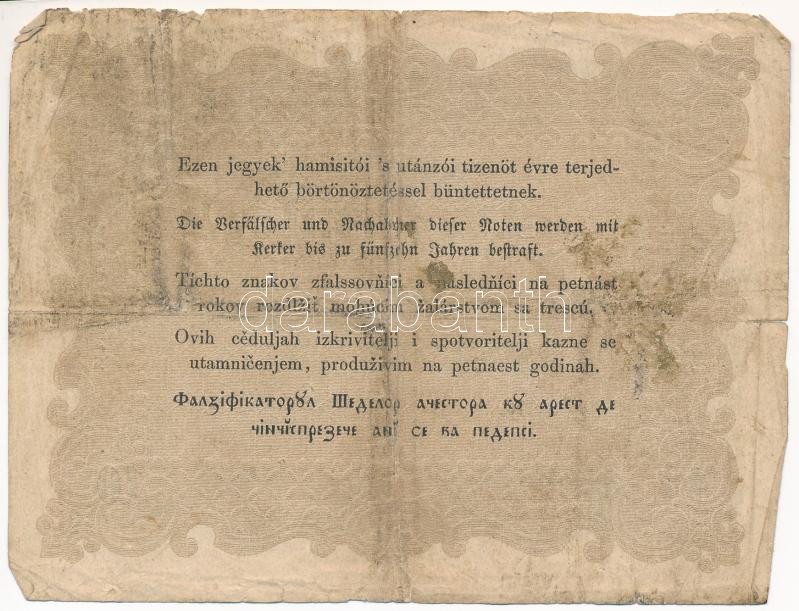 Ezen jegyek’ hamisitói ’s utánzói tizenöt évre terjed-
hető börtönöztetéssel büntettetnek.
Die Verfälscher und Nachahmer dieser Noten werden mit
Kerker bis zu fünfzehn Jahren bestraft.
Tíchto znakov zfalssovňíci a nasledňíci na petnást
rokov rozúlžiť mohúcim žalárstvom sa trescú.
darabanth
Ovih cěduljah izkrivitelji i spotvoritelji kazne se
utamničenjem, produživim na petnaest godinah.
Фалзіфікаторꙋл Шеделор ачестора кꙋ арест де
чінчїспрезече анї се ва педепсі.